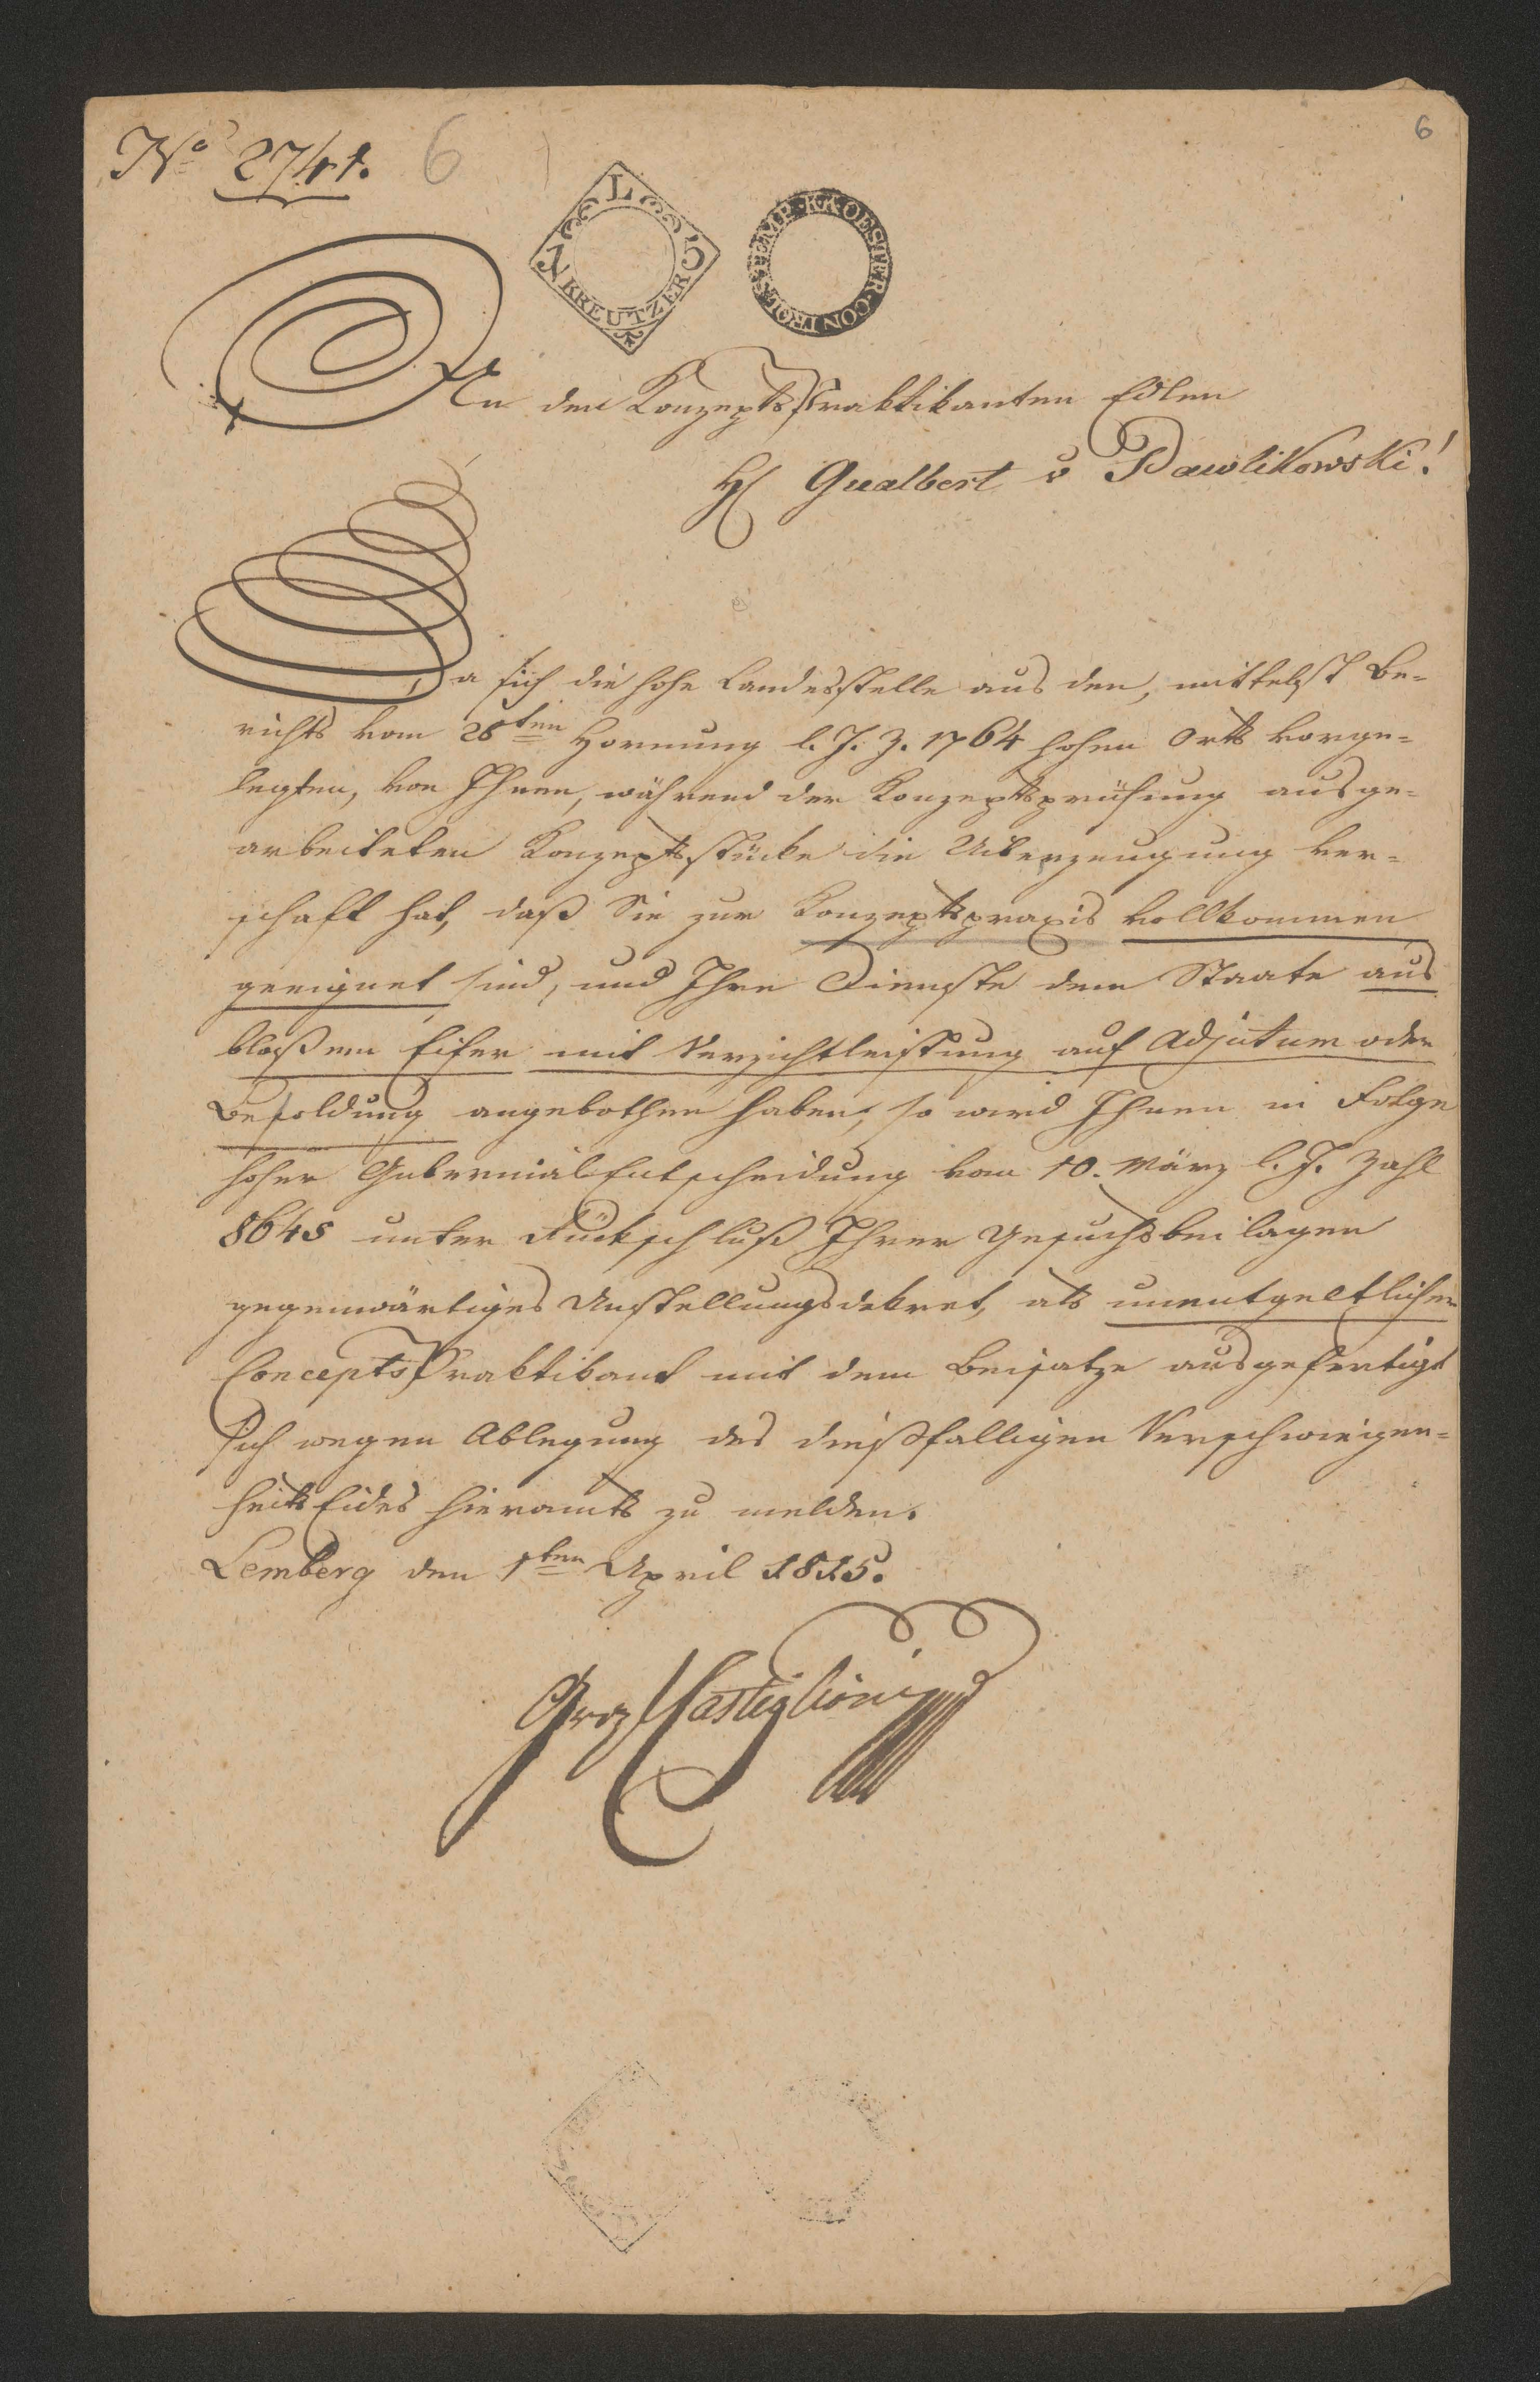 No 2741. 6
6
L
15 KREUTZER
K·K·OESTER·CONTROLSTEMP·
An den Konzepts Praktikanten Edlen
H Gualbert v Pawlikowski!
Da sich die hohe Landesstelle aus den, mittelst Be-
richts vom 28ten Hornung l. J. Z. 1764 hohen Orts vorge-
legten, von Ihnen, während der Konzeptsprüfung ausge-
arbeiteten Konzeptsstücke die Uiberzeugung ver-
schaft hat, daß Sie zur Konzeptspraxis vollkommen
geeignet sind, und Ihre Dienste dem Staate aus
bloßem Eifer mit Verzichtleistung auf Adjutum oder
Besoldung angebothen haben, so wird Ihnen in Folge
hoher Gubernial Entscheidung vom 10. März l. J. Zahl
8645 unter Rückschluß Ihrer Gesuchsbeilagen
gegenwärtiges Anstellungsdekret, als unentgeltlicher
Concepts Praktikant mit dem Beisatze ausgefertigt
sich wegen Ablegung des dießfalligen Verschwiegen-
heits Eides hieramts zu melden.
Lemberg den 1ten April 1815.
Castiglioni